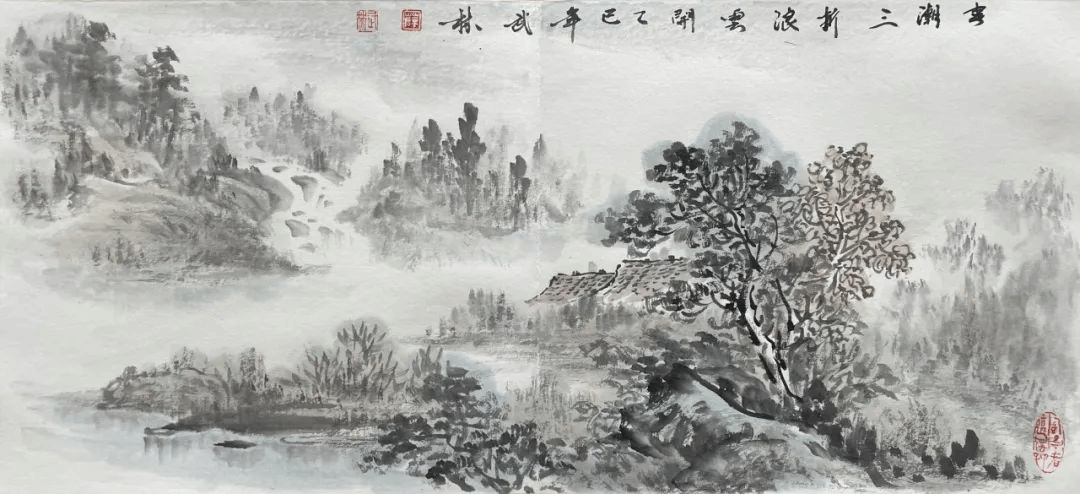 春潮三折浪雲開乙巳年武林